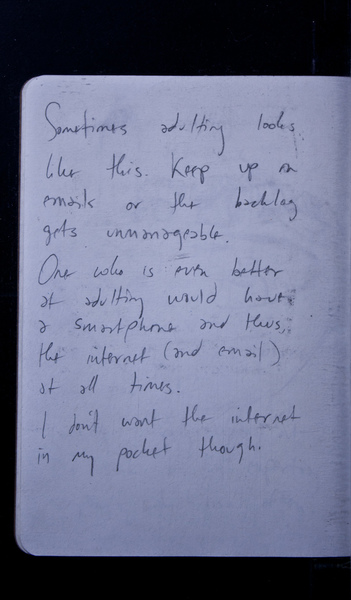 Sometimes adulting looks
like this. Keep up on
emails or the backlog
gets unmanageable.
One who is even better
at adulting would have
a smartphone and thus,
the internet (and email)
at all times.
I don't want the internet
in my pocket though.